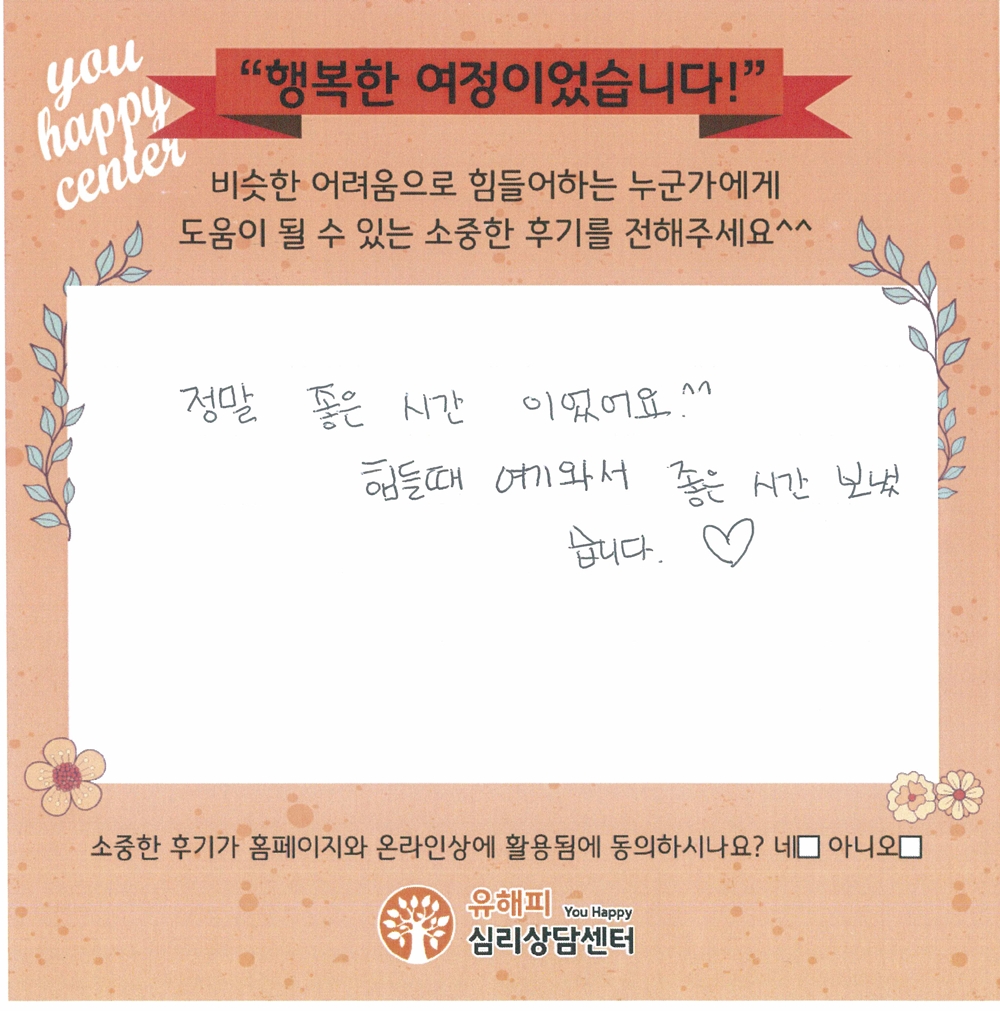 you
happy
center
“행복한 여정이었습니다!”
비슷한 어려움으로 힘들어하는 누군가에게
도움이 될 수 있는 소중한 후기를 전해주세요^^
정말 좋은 시간 이었어요.^^
힘들때 여기와서 좋은 시간 보냈
습니다. ♡
소중한 후기가 홈페이지와 온라인상에 활용됨에 동의하시나요? 네□ 아니오□
유해피 You Happy
심리상담센터